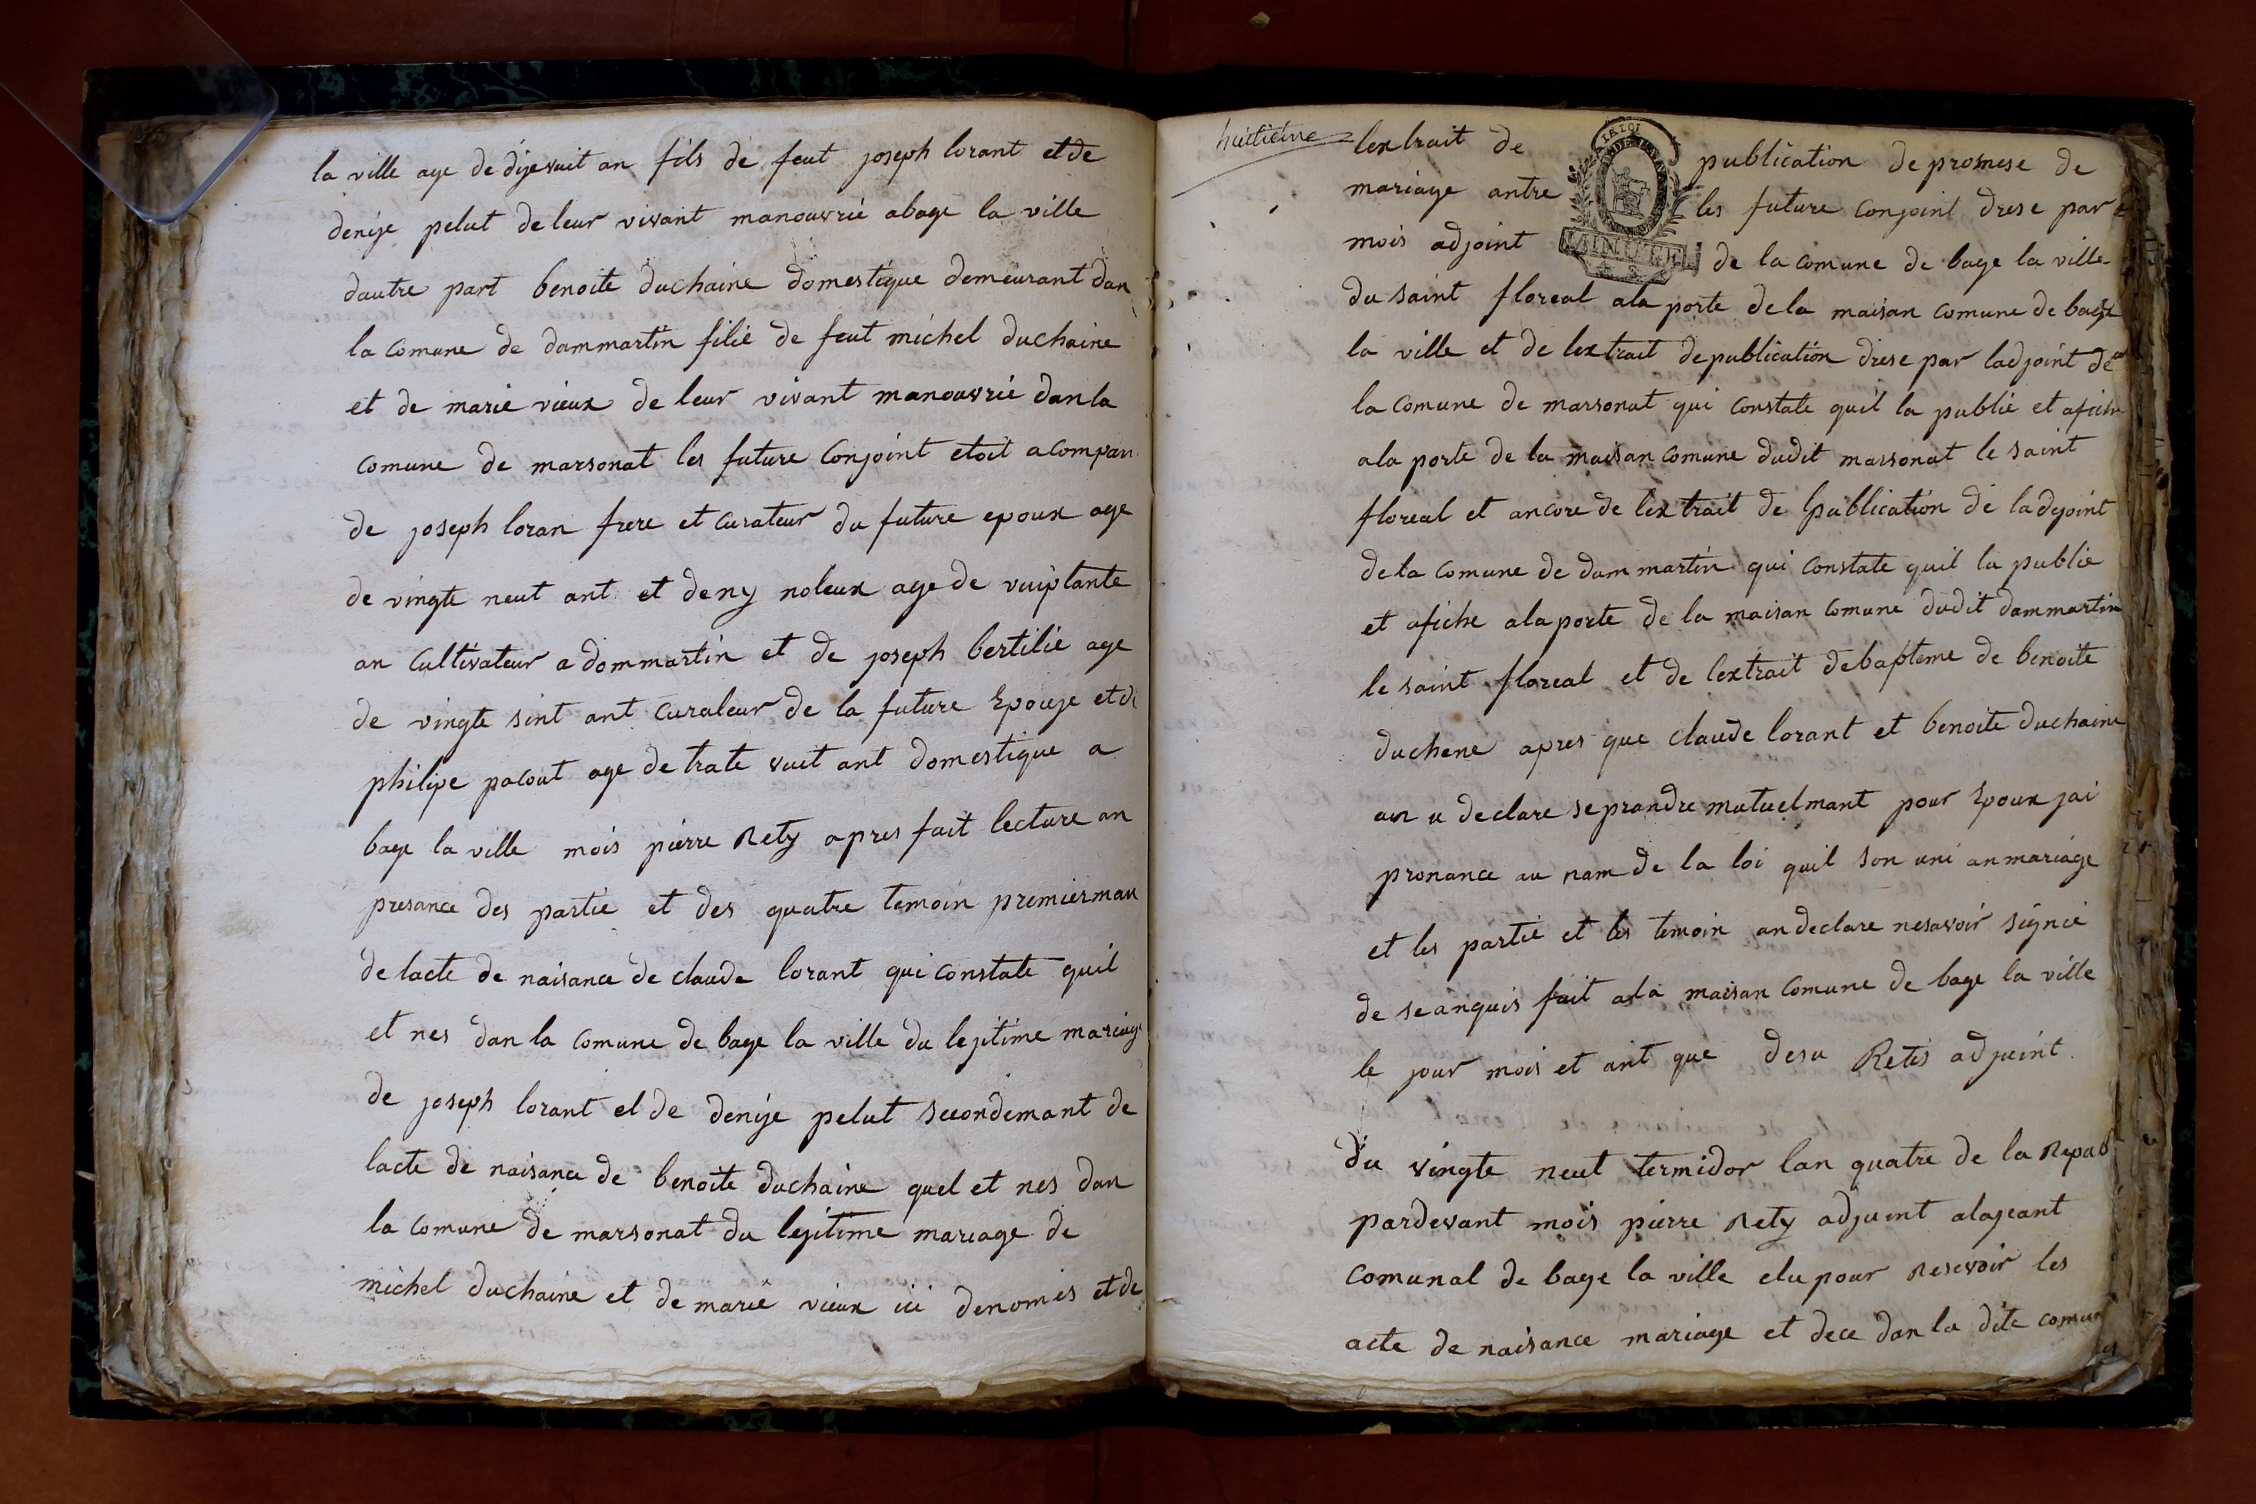 la ville age de dijevuit an fils de feut joseph lorant et de
denije pelut de leur vivant manouvrié a bage la ville
dautre part benoite duchaine domestique demeurant dan
la comune de dammartin filie de feut michel duchaine
et de marie vieux de leur vivant manouvrié dan la
comune de marsonat les future conjoint etoit acompan
de joseph loran frere et curateur du future epoux age
de vingte neut ant et deny noleux age de vuiptante
an cultivateur a dommartin et de joseph bertilié age
de vingte sint ant curateur de la future Epouje et de
philipe pacout age de trate vuit ant domestique a
bage la ville mois pierre Rety apres fait lecture an
presance des partie et des quatre temoin premierman
de lacte de naisance de claude lorant qui constate quil
et nes dan la comune de bage la ville du lejitime mariage
de joseph lorant et de denije pelut secondemant de
lacte de naisance de benoite duchaine quel et nes dan
la comune de marsonat du lejitime mariage de
michel duchaine et de marie vieux ici denomés et de
huitieme
lextrait de publication de promese de
mariage antre les future conjoint drese par
mois adjoint de la comune de bage la ville
du saint floreal a la porte de la maisan comune de bage
la ville et de lextrait de publication drese par ladjoint de
la comune de marsonat qui constate quil la publié et afiche
a la porte de la maisan comune dudit marsonat le saint
floreal et ancore de lextrait de publication de ladjoint
de la comune de dammartin qui constate quil la publie
et afiche a la porte de la maisan comune dudit dammartin
le saint floreal et de lextrait de bapteme de benoite
duchene apres que claude lorant et benoite duchaine
declare se prandre mutuelmant pour Epoux jai
pronance au nam de la loi quil son uni an mariage
et les partie et les temoin an declare nesavoir signié
de se anquis fait a la maisan comune de bage la ville
le jour mois et ant que desu Retis adjuint
du vingte neut termidor lan quatre de la Repub
pardevant mois pierre Rety adjuint alajeant
comunal de bage la ville elu pour Resevoir les
acte de naisance mariage et dece dan la dite comun
LA LOI
MINUTE